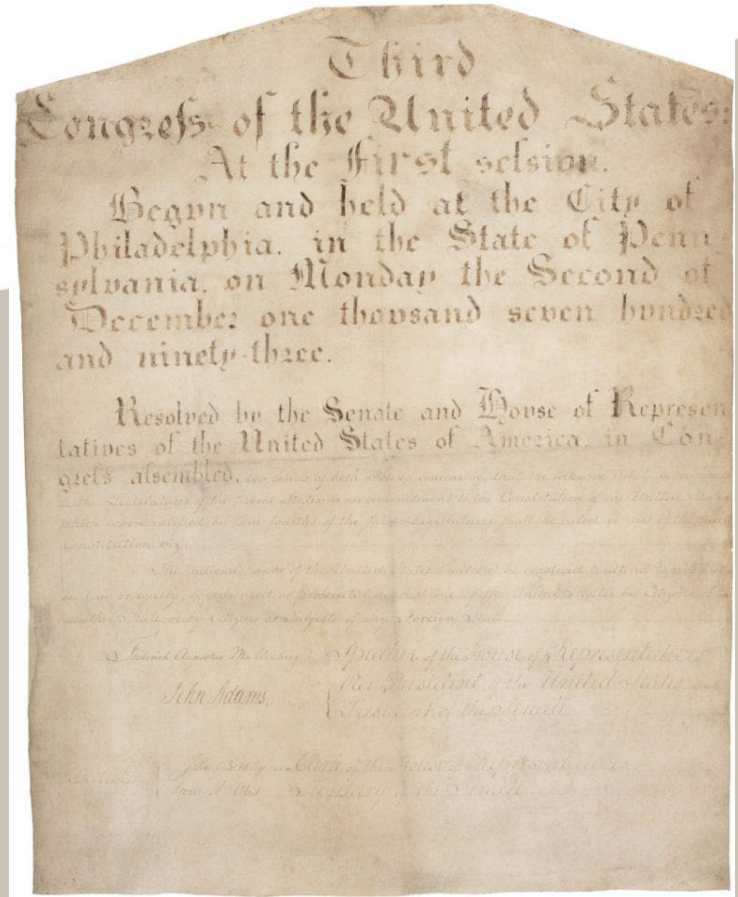 Third
Congreſs of the United States:
At the First seſsion.
Begun and held at the City of
Philadelphia. in the State of Penn
sylvania. on Monday the Second of
December one thousand seven hundred
and ninety-three.
Resolved by the Senate and House of Represen
tatives of the United States of America in Con
greſs aſsembled, two thirds of both Houses concurring, that the following
to the Legislatures of the several States, as an amendment to the Constitution of the United States
which when ratified by three fourths of the said Legislatures shall be valid as part of the said
Constitution, viz.
The Judicial power of the United States shall not be construed to extend to any suit
in law or equity, commenced or prosecuted against one of the United States by Citizens of
another State, or by Citizens or Subjects of any Foreign State.
Frederick Augustus Muhlenberg Speaker of the House of Representatives
John Adams, Vice President of the United States and
President of the Senate.
John Beckley Clerk of the House of Representatives
Sam. A. Otis Secretary of the Senate.